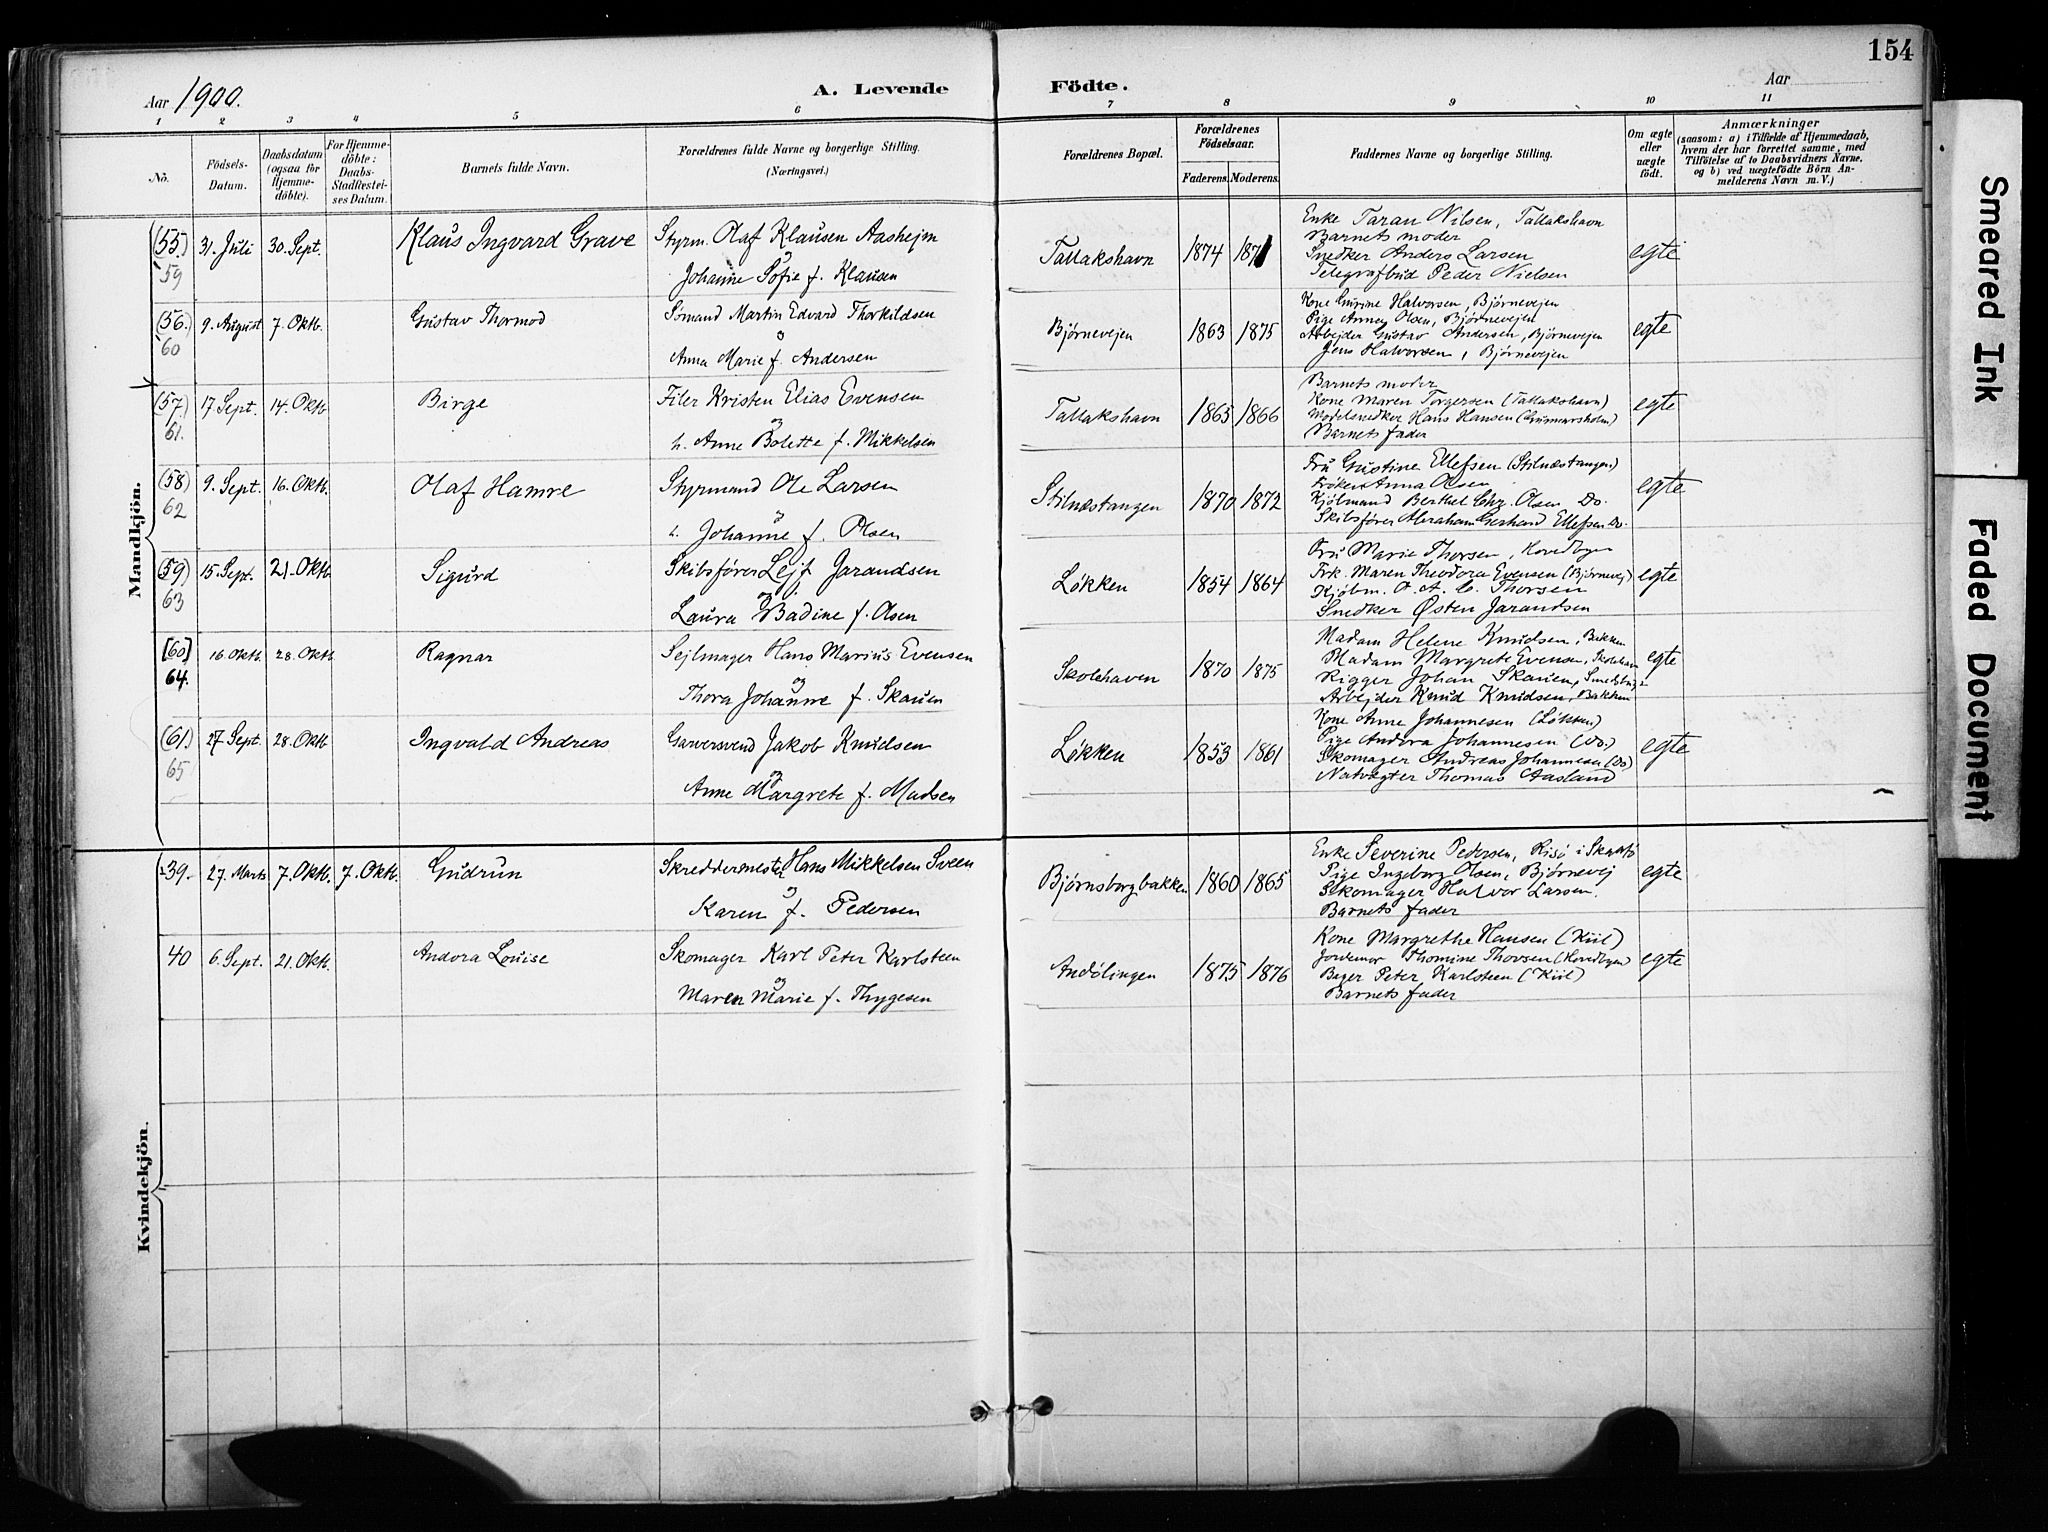 154
Aar 1900.
A. Levende Födte.
Aar
1 2 3 4 5 6 7 8 9 10 11
No.
Födsels-Datum.
Daabsdatum (ogsaa for Hjemmedöbte).
For Hjemmedöbte: Daabs-Stadfestelses Datum.
Barnets fulde Navn.
Forældrenes fulde Navne og borgerlige Stilling. (Næringsvei.)
Forældrenes Bopæl.
Forældrenes Födselsaar.
Faderens. Moderens.
Faddernes Navne og borgerlige Stilling.
Om ægte eller uægte födt.
Anmærkninger
(saasom: a) i Tilfælde af Hjemmedaab, hvem der har forrettet samme, med Tilföielse af to Daabsvidners Navne, og b) ved uægtefödte Börn Anmelderens Navn m. V.)
Mandkjön.
(55.) 59 31. Juli 30. Sept. Klaus Ingvard Grave
Styrm. Olaf Klausen Aasheim
og
Johanne Sofie f. Klausen
Tallakshavn 1874 1871
Enke Taran Nilsen, Tallakshavn
Barnets moder
Snedker Anders Larsen
Telegrafbud Peder Nielsen
egte
(56.) 60 9. August 7. Oktb. Gustav Thormod
Sömand Martin Edvard Thorkildsen
og
Anna Marie f. Andersen
Bjørnevejen 1863 1875
Kone Gurine Halvorsen, Bjørnevejen
Pige Anna Olsen, Bjørnevejen
Arbejder Gustav Andersen, Bjørnevejen
Jens Halvorsen, Bjørnevejen
egte
(57.) 61. 17. Sept. 14. Oktb. Birge
Filer Kristen Elias Evensen
og
h. Anne Bolette f. Mikkelsen
Tallakshavn 1865 1866
Barnets moder
Kone Maren Torgersen (Tallakshavn)
Modelsnedker Hans Hansen (Gunnarsholm)
Barnets fader
egte
(58) 62 9. Sept. 16. Oktb. Olaf Hamre
Styrmand Ole Larsen
og
h. Johanne f. Olsen
Stilnæstangen 1870 1872
Fru Gustine Ellefsen (Stilnæstangen)
Frøken Anna Olsen
Kjöbmand Berthel Chr. Olsen Do.
Skibsfører Abraham Gerhard Ellefsen Do.
egte
(59) 63 15. Sept. 21. Oktb. Sigurd
Skibsfører Lejf Jarandsen
og
Laura Badine f. Olsen
Løkken 1854 1864
Fru Marie Thorsen, Hovedbyen
Frk. Maren Theodora Evensen (Bjørnevej)
Kjøbm. O. A. C. Thorsen
Snedker Østen Jarandsen
egte
[60] 64. 16 Oktb. 28. Oktb. Ragnar
Sejlmager Hans Marius Evensen
og
Thora Johanne f. Skauen
Skolehaven 1870 1875
Madam Helene Knudsen, Bakken
Madam Margrete Evensen, Skolehavn
Rigger Johan Skauen,
Arbejder Knud Knudsen, Bakken
egte
(61.) 65 27. Sept. 28. Oktb. Ingvald Andreas
Garversvend Jakob Knudsen
og
Anne Margrete f. Madsen
Løkken 1853 1861
Kone Anne Johannesen (Løkken)
Pige Andora Johannesen (Do.)
Skomager Andreas Johannesen (Do)
Natvægter Thomas Aasland
egte
Kvindekjön.
39. 27. Marts 7. Oktb. 7. Oktb. Gudrun
Skreddermester Hans Mikkelsen Sveen
og
Karen f. Pedersen
Bjørnsborgbakken 1860 1865
Enke Severine Pedersen, Risö i
Pige Ingeborg Olsen, Bjørnevej
Skomager Halvor Larsen.
Barnets fader
egte
40 6. Sept. 21. Oktb. Andora Louise
Skomager Karl Peter Karlsteen
og
Maren Marie f. Thygesen
Andölingen 1875 1876
Kone Margrethe Hansen (Kiil)
Jordemor Thomine Thorsen (Hovedbyen)
Bager Peter Karlsteen (Kiil)
Barnets fader
egte
Smeared Ink
Faded Document